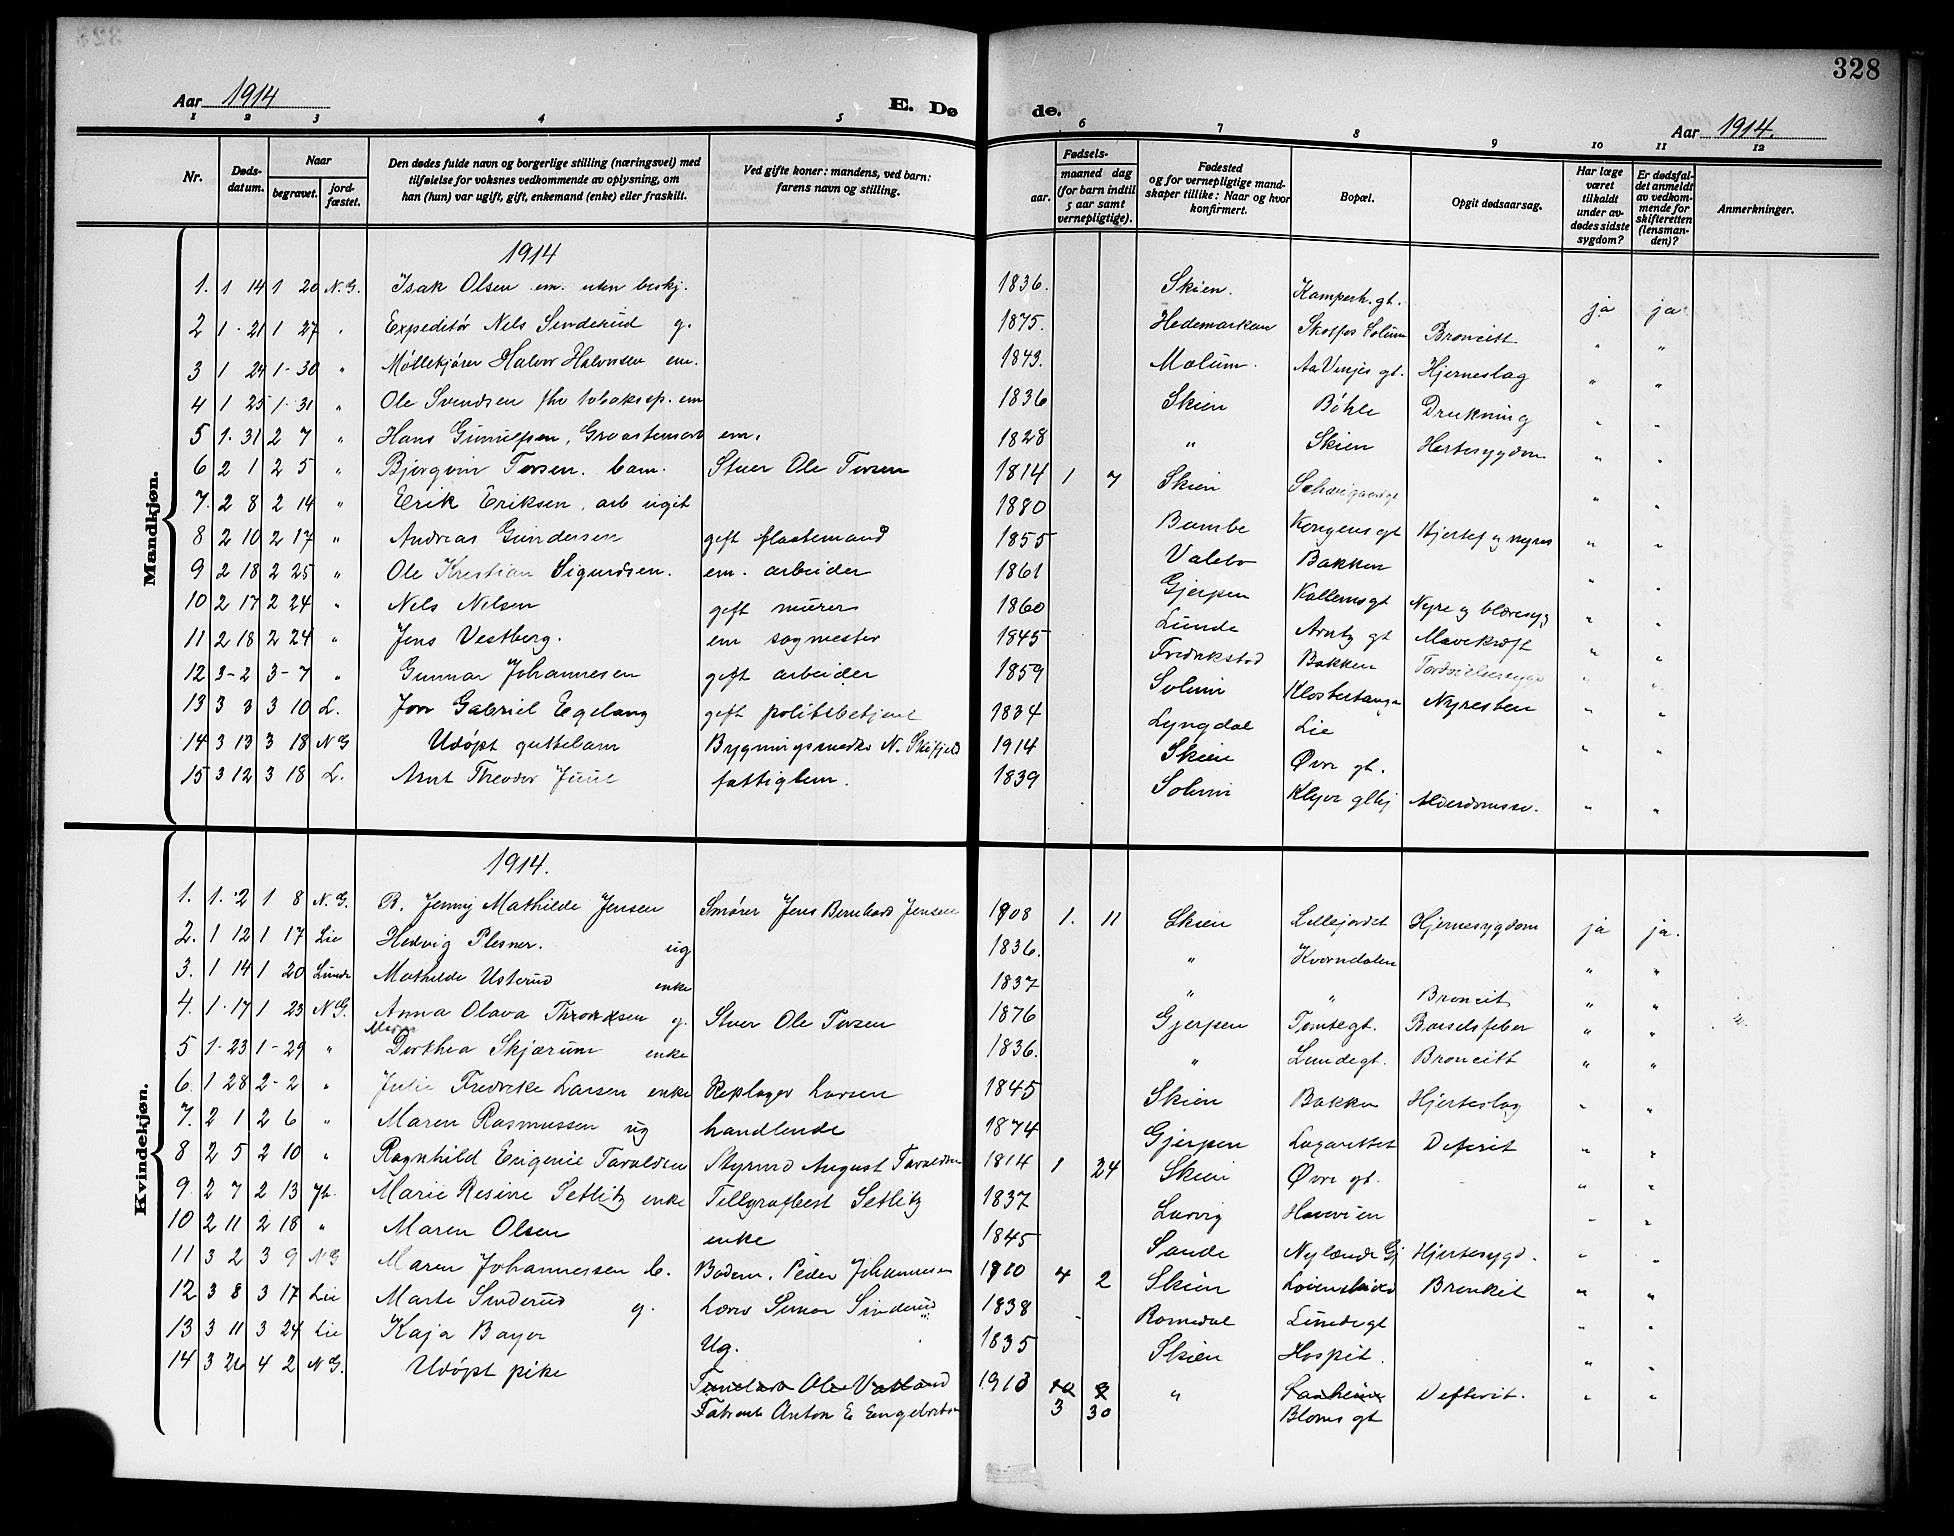 328
Aar 1914
E. Døde.
Aar 1914.
1 2 3 4 5 6 7 8 9 10 11 12
Nr.
Døds-datum.
Naar
begravet.
jord-fæstet.
Den dødes fulde navn og borgerlige stilling (næringsvei) med tilføielse for voksnes vedkommende av oplysning, om han (hun) var ugift, gift, enkemand (enke) eller fraskilt.
Ved gifte koner: mandens, ved barn: farens navn og stilling.
Fødsels-
aar.
maaned dag (for barn indtil 5 aar samt vernepligtige).
Fødested og for vernepligtige mandskaper tillike: Naar og hvor konfirmert.
Bopæl.
Opgit dødsaarsag.
Har læge været tilkaldt under avdødes sidste sygdom?
Er dødsfaldet anmeldt av vedkommende for skifteretten (lensmanden)?
Anmerkninger.
Mandkjøn.
1914
1. 1 14 1 20 N.G. Isak Olsen em. uten beskj. 1836. Skien. Kamperh. gt. ja ja
2 1. 21 1 27 " Expeditør Nels Sinderud g. 1875. Hedemarken Skotfos Solum Broncitt " "
3 1 24 1-30 " Møllekjører Halvor Halvorsen em. 1843. Melum. Aa Vinjes gt. Hjerneslag " "
4 1 25 1. 31 " Ole Svendsen fhv tobaksp. em 1836 Skien Bøhle Drukning " "
5 1. 31 2 7 " Hans Gunulfsen, em. 1828 " Skien Hertesygdom " "
6 2 1 2 5 " Bjørgvin Torsen. barn. Stuer Ole Torsen 1814 1 7 Skien " "
7. 2 8 2 14 " Erik Eriksen, arb ugit 1880 Bamble Kongens gt Hjertef og nyres " "
8 2 10 2 17 " Andreas Gundersen geft flaatemand 1855 Valebo Bakken
9 2 18 2 25 " Ole Kristian Sigurdsen. em. arbeider 1861 Gjerpen Kallems gt Nyre og blæresyg " "
10 2 17 2 24 " Nels Nelsen geft murer 1860 Lunde Arntz gt Mavekræft " "
11 2 18 2 24 " Jens Vestberg. em sagmester 1845 Fredrikstad Bakken " "
12 3-2 3-7 " Gunnar Johannesen geft arbeider 1859 Solum Klostertangen Nyresten " "
13 3 3 3 10 L. Jon Gabriel Egelang geft politibetjent 1834 Lyngdal Lie " "
14 3 13 3 18 N G Udøpt guttebarn Bygningssnedker N. 1914 Skien Øvre gt.
15 3 12 3 18 L. Arnt Theodor Juul fattiglem. 1839 Solum Klyve glhj Alderdomssv. " "
Kvindekjøn.
1914.
1. 1. 2 1 8 N. G. B. Jenny Mathilde Jensen Smører Jens Bernhard Jensen 1908 1. 11 Skien Lillejordet Hjernesygdom ja ja.
2. 1 12 1 17 Lie Hedvig Plesner. ug 1836. " Kverndalen " "
3. 1 14 1 20 Lunde Mathilde Usterud enke 1837 " " Broncit " "
4. 1. 17 1 23 N G. Anna Olava Throndsen g. Stuer Ole Torsen 1876 Gjerpen Tomtegt. Barselsfeber " "
5 1-23 1-29 " Maren Dorthea Skjærum enke 1836. " Lundegt. Broncitt " "
6. 1 28 2-2 " Julie Fredrike Larsen enke Repslager Larsen 1845 Skien Bakken Hjerteslag " "
7. 2 1 2 6 " Maren Rasmussen ug handlende 1874 Gjerpen Lazarettet Deferit " "
8 2 5 2 10 " Ragnhild Eugenie Taraldsen Styrmd August Taraldsen 1814 1 24 Skien Øvre gt. " "
9. 2 7 2 13 Jh. Marie Resine Setlitz enke Tellgrafbest Setlitz 1837 Larvig " "
10 2 11 2 18 " Maren Olsen enke 1845 Sande Nylænde Gj Hjertesygd. " "
11 3 2 3 9 N G Maren Johannessen b. Bødm. Peder Johannesen 1910 4 2 Skien Bronkit " "
12. 3 8 3 17 Lie Marte Sinderud g. Lærer Simon Sinderud 1838 Romedal Lundegt " "
13 3 11 3 24 Lie Kaja Bayer Ug. 1835 Skien Hospit. " "
14 3 26 4 2 N G. Udøpt pike Ole Vatland 1913 10 9 " Defterit. " "
Anton E Engebretsen 3 30 Bloms gt